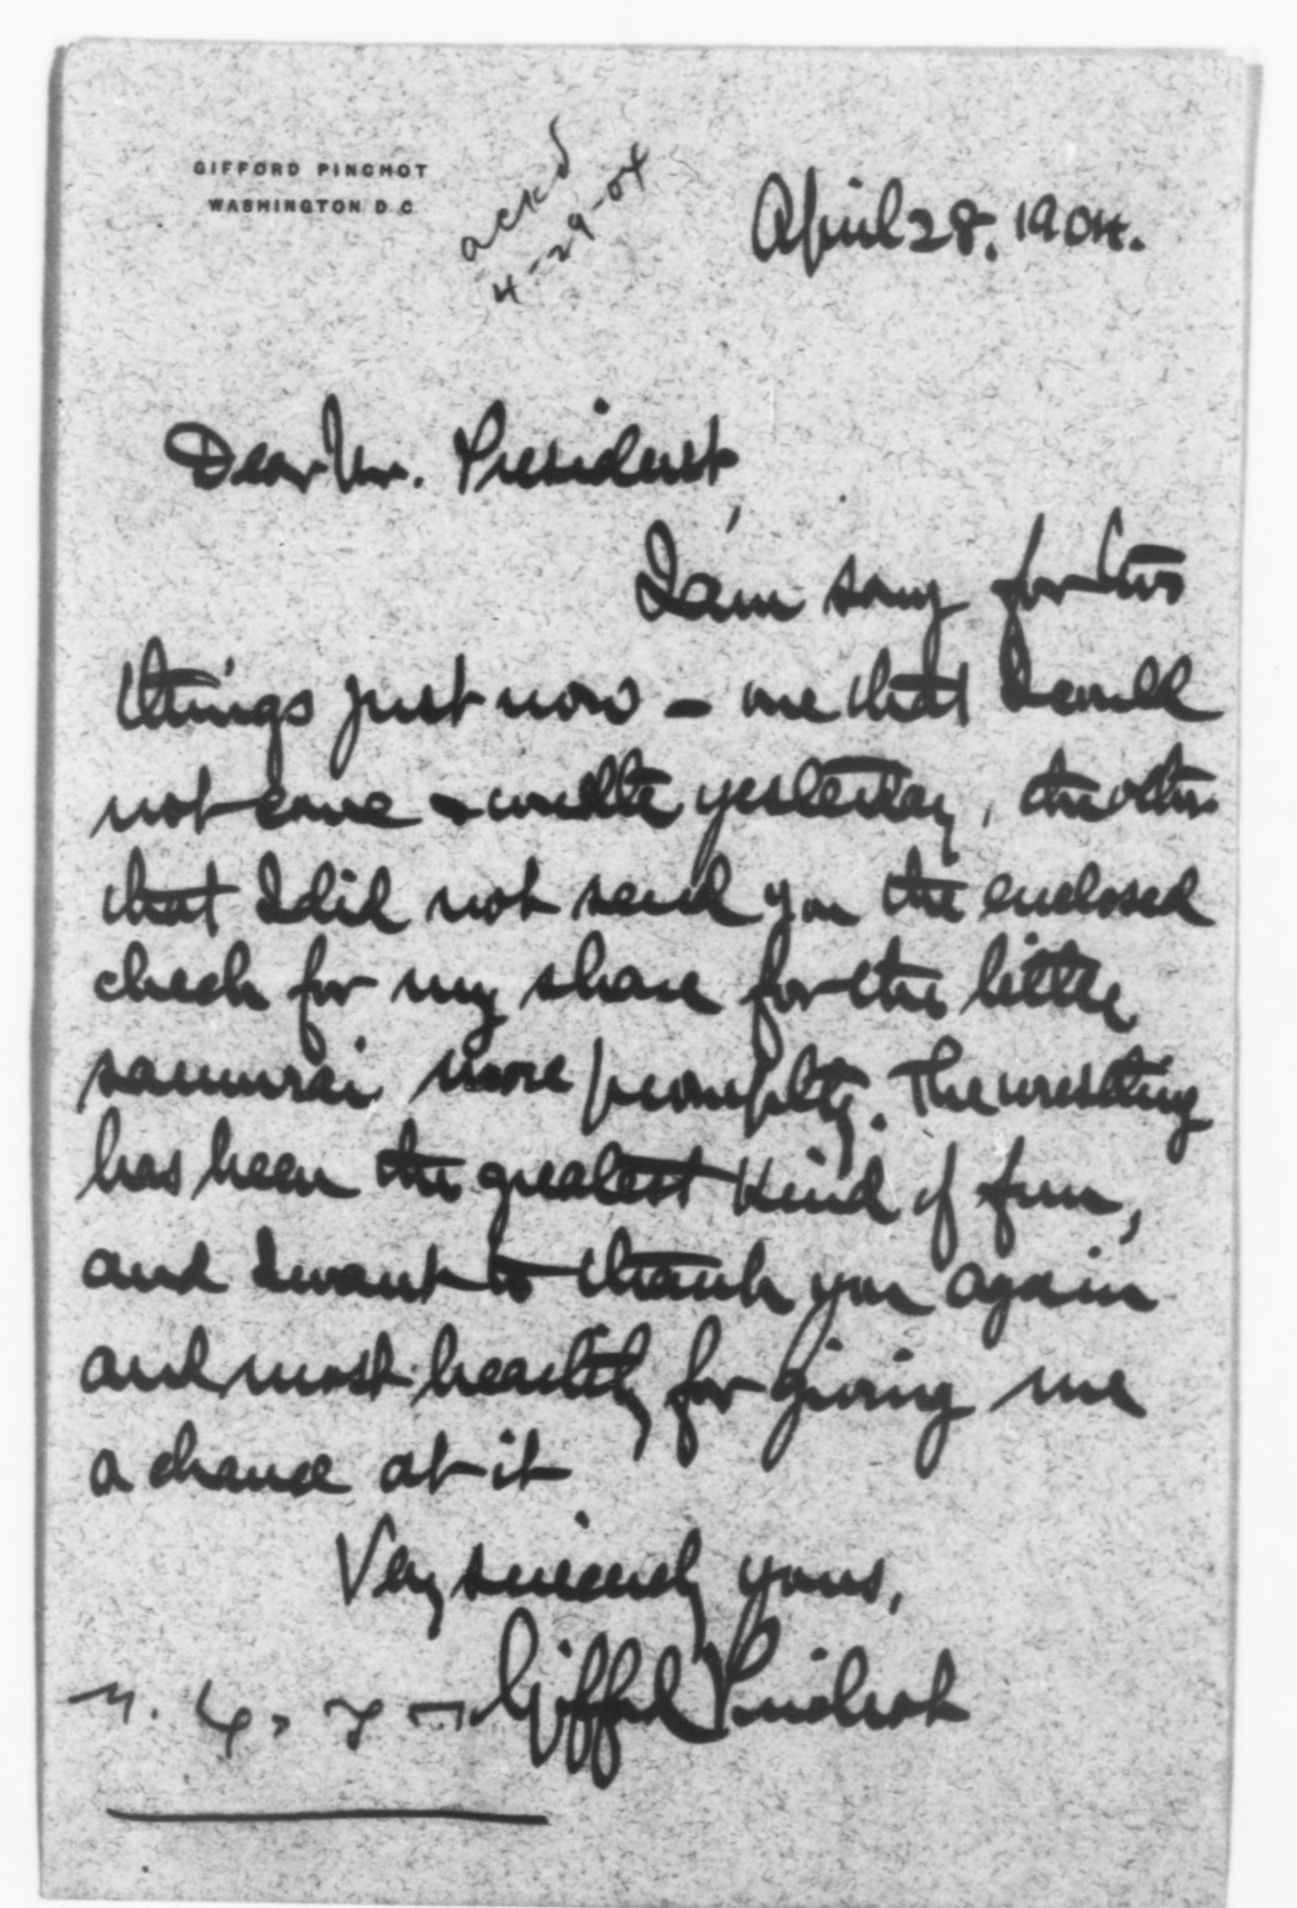 GIFFORD PINCHOT
WASHINGTON D C
ackd
4-29-04
April 28, 1904.
Dear Mr. President,
I am sorry for two
things just now - one that I could
not come & wrestle yesterday, the other
that I did not send you the enclosed
check for my share for the little
samurai more promptly. The wrestling
has been the greatest kind of fun,
and I want to thank you again
and most heartily for giving me
a chance at it
Very sincerely yours,
Gifford Pinchot